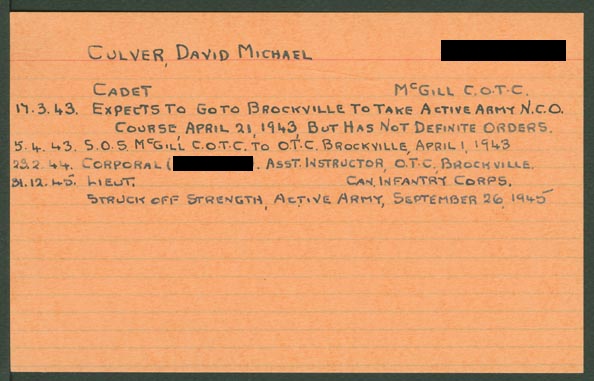 CULVER, DAVID MICHAEL
CADET McGILL C.O.T.C.
17.3.43. EXPECTS TO GO TO BROCKVILLE TO TAKE ACTIVE ARMY N.C.O.
COURSE, APRIL 21, 1943, BUT HAS NOT DEFINITE ORDERS.
5.4.43. S.O.S. McGILL C.O.T.C. TO O.T.C. BROCKVILLE, APRIL 1, 1943
29.2.44. CORPORAL ( . ASST. INSTRUCTOR, O.T.C, BROCKVILLE.
31.12.45. LIEUT. CAN. INFANTRY CORPS.
STRUCK OFF STRENGTH, ACTIVE ARMY, SEPTEMBER 26, 1945